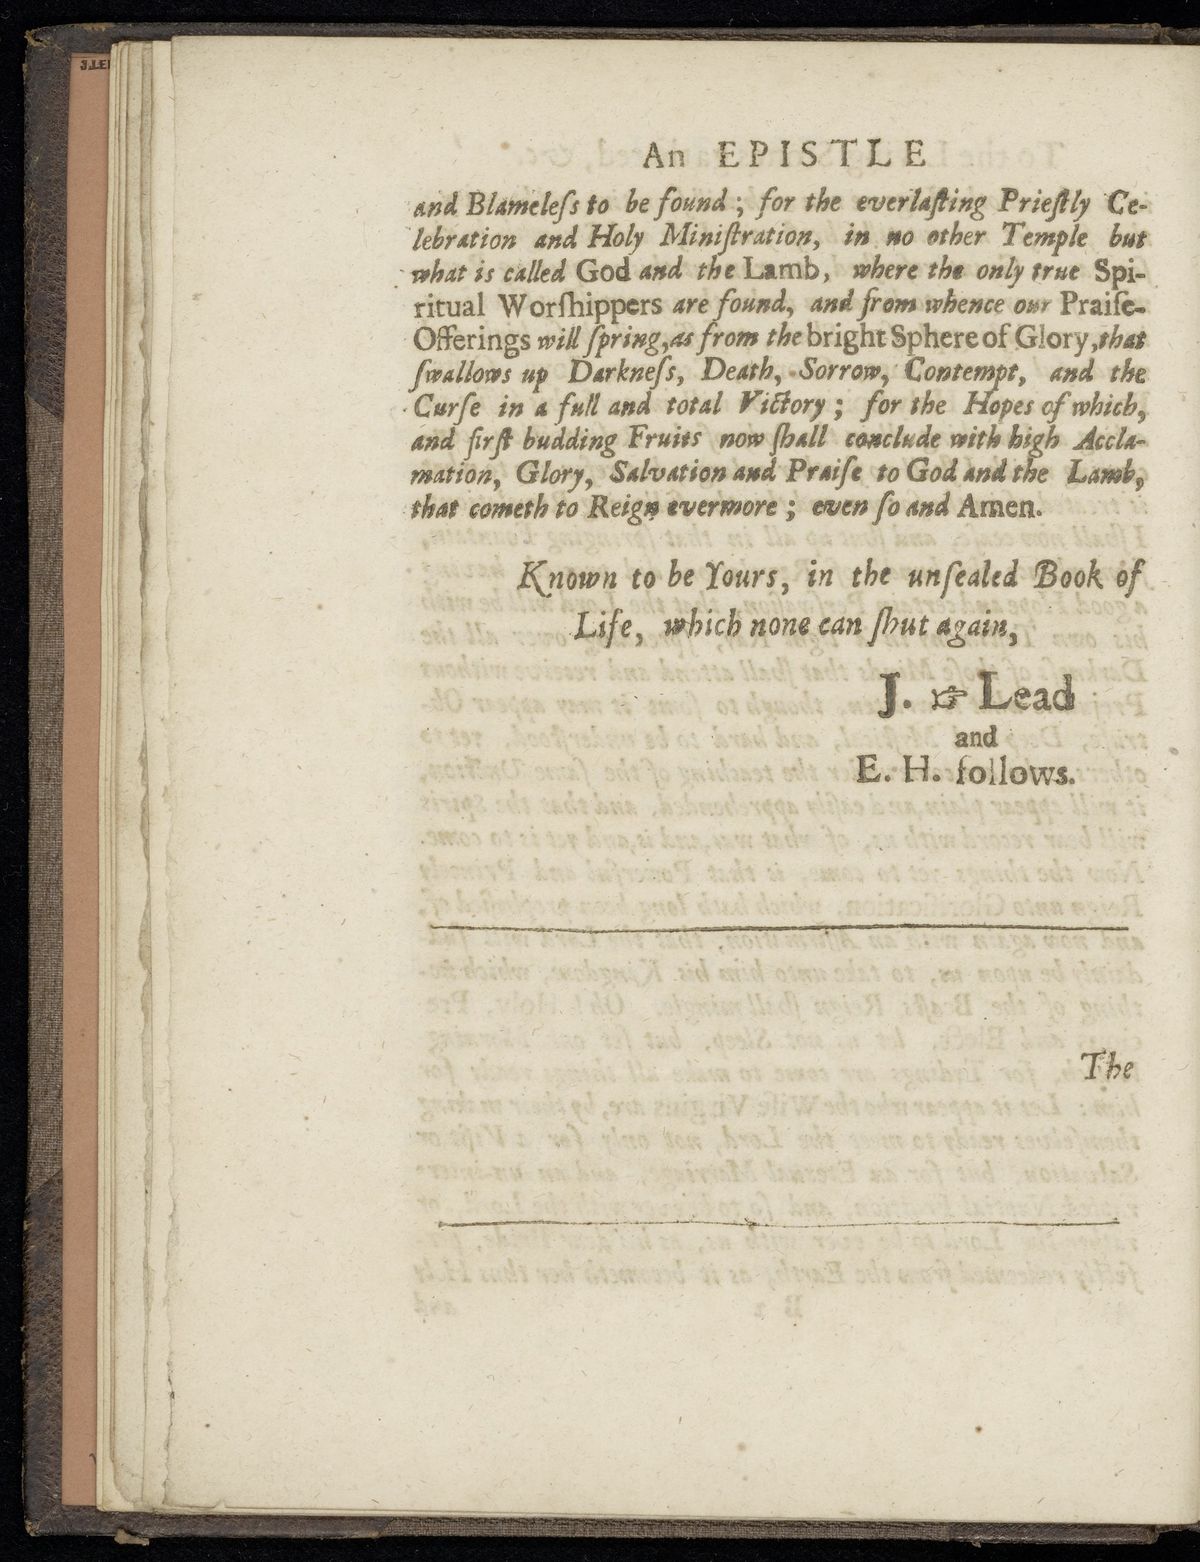 An EPISTLE
and Blameleſs to be found ; for the everlaſting Prieſtly Ce-
lebration and Holy Miniſtration, in no other Temple but
what is called God and the Lamb, where the only true Spi-
ritual Worſhippers are found, and from whence our Praiſe-
Offerings will ſpring, as from the bright Sphere of Glory, that
ſwallows up Darkneſs, Death, Sorrow, Contempt, and the
Curſe in a full and total Victory ; for the Hopes of which,
and firſt budding Fruits now ſhall conclude with high Accla-
mation, Glory, Salvation and Praiſe to God and the Lamb,
that cometh to Reign evermore ; even ſo and Amen.
Known to be Yours, in the unſealed Book of
Life, which none can ſhut again,
J. ☞ Lead
and
E. H. follows.
The